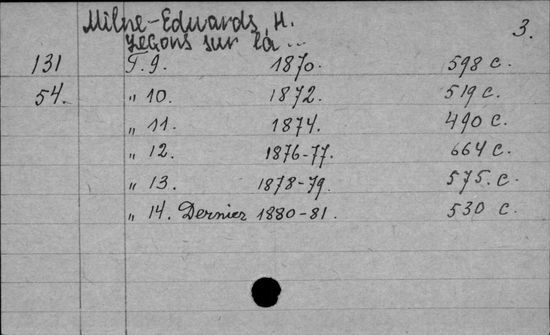 Milne-Edwards, H. 3.
Leçons sur la ...
131 T. 9. 1870. 598 с.
54. " 10. 1872. 519 с.
" 11. 1874. 490 с.
" 12. 1876-77. 664 с.
" 13. 1878-79. 575. с.
" 14. Dernier 1880-81. 530 с.